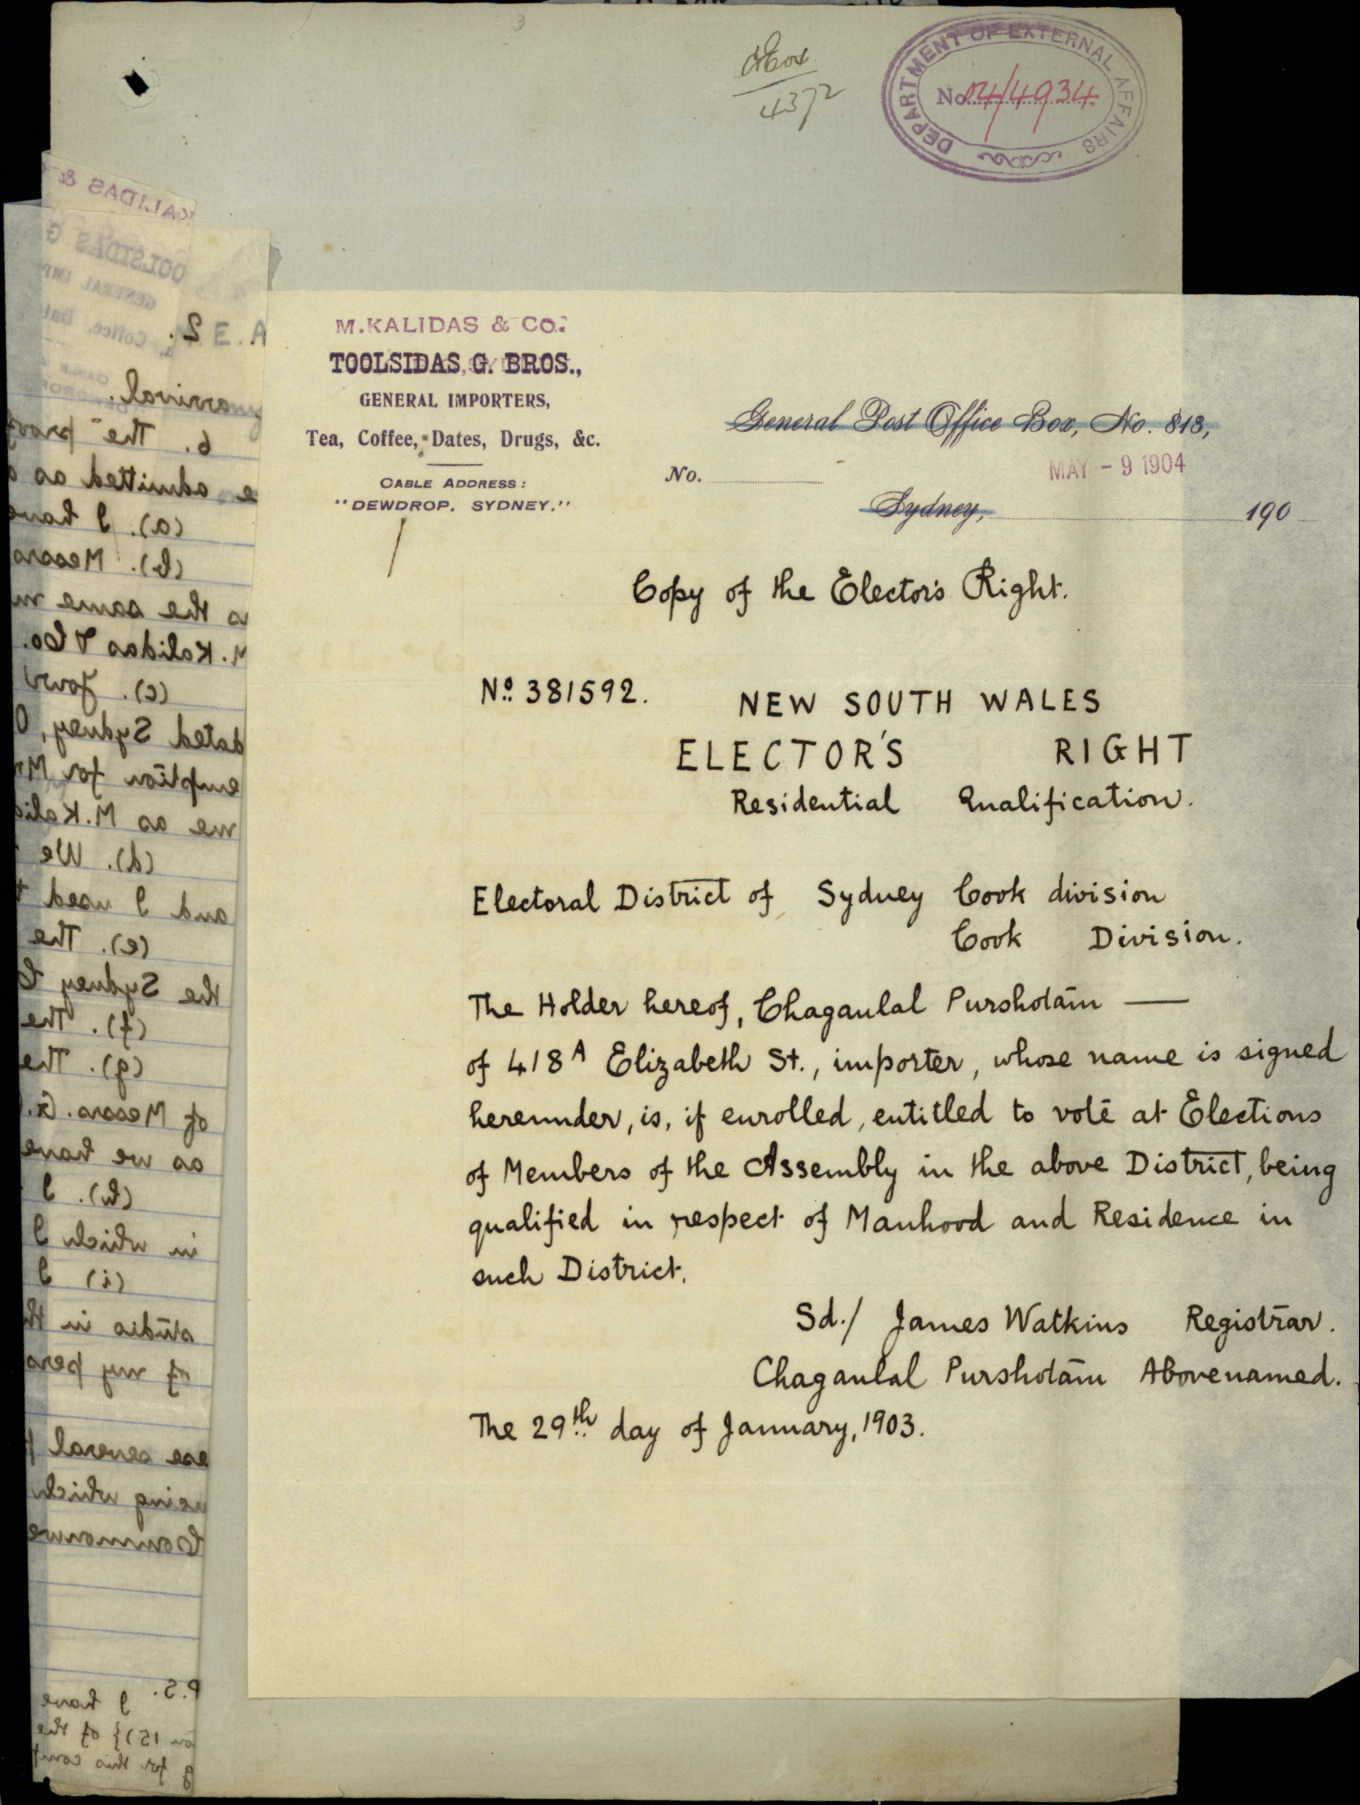 4372
DEPARTMENT OF EXTERNAL AFFAIRS
No. 04/4934
M. KALIDAS & CO.
TOOLSIDAS, G. BROS.,
GENERAL IMPORTERS,
Tea, Coffee, Dates, Drugs, &c.
CABLE ADDRESS:
"DEWDROP. SYDNEY."
General Post Office Box, No. 813,
No.
MAY - 9 1904
Sydney, 190
Copy of the Elector's Right.
No. 381592.
NEW SOUTH WALES
ELECTOR'S RIGHT
Residential Qualification.
Electoral District of Sydney Cook division
Cook Division.
The Holder hereof, Chaganlal Purshotam —
of 418A Elizabeth St., importer, whose name is signed
hereunder, is, if enrolled, entitled to vote at Elections
of Members of the Assembly in the above District, being
qualified in respect of Manhood and Residence in
such District.
Sd./ James Watkins Registrar.
Chaganlal Purshotam Abovenamed.
The 29th day of January, 1903.
KALIDAS &
TOOLSIDAS G
GENERAL IMP
A. E 2.
arrival.
6. The proof
admitted as
(a). I have
(b). Messrs
the same
M. Kalidas & Co.
(c). Your
dated Sydney, O
emption for Mr
me as M. Kalid
(d). We
and I used t
(e). The
the Sydney C
(f). The
(g). The
of Messrs. G.
as we have
(h). I
in which I
(i) I
studio in th
of my pers
several
being which
Commonwe
P.S. I have
on 15)} of the
for this com